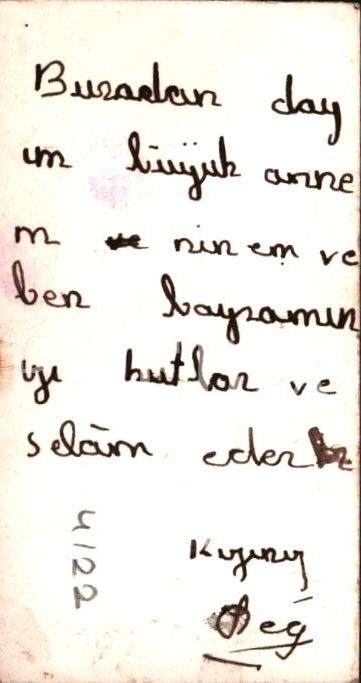 Buradan day
ım büyük anne
m ve nin em ve
ben bayramın
ızı kutlar ve
selâm ederiz
Kızınız
4122